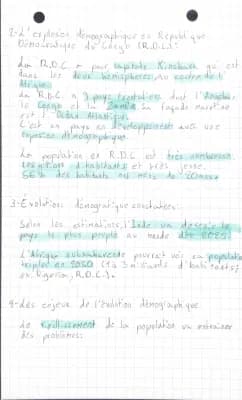 2-L'explosion démographique en République
Démocratique du Congo (R.D.C.):
La R.D.C a pour capitale Kinshasa qui est
dans les deux hémisphères, au centre de l'
Afrique.
La R.D.C. a 9 pays frontaliers dont l'Angola
le Congo et la Zambie sa façade maritime
est l'Océan Atlantique.
C'est un pays en développement avec une
explosion démographique.
La population en R.D.C est très nombreuse
millions d'habitants et très jeune.
des habitants ont moins de
3-Évolutions démographiques constatées:
Selon les estimations, l'Inde va devenir le
pays le plus peuplé au monde dès 2023.
L'Afrique subsaharienne pourrait voir sa population
tripler en 2050 (1 à 3 milliards d'habitants)
ex: Nigéria, R.D.C.).
4-Les enjeux de l'évolution démographique
Le vieillissement de la population va entraîner
des problèmes: